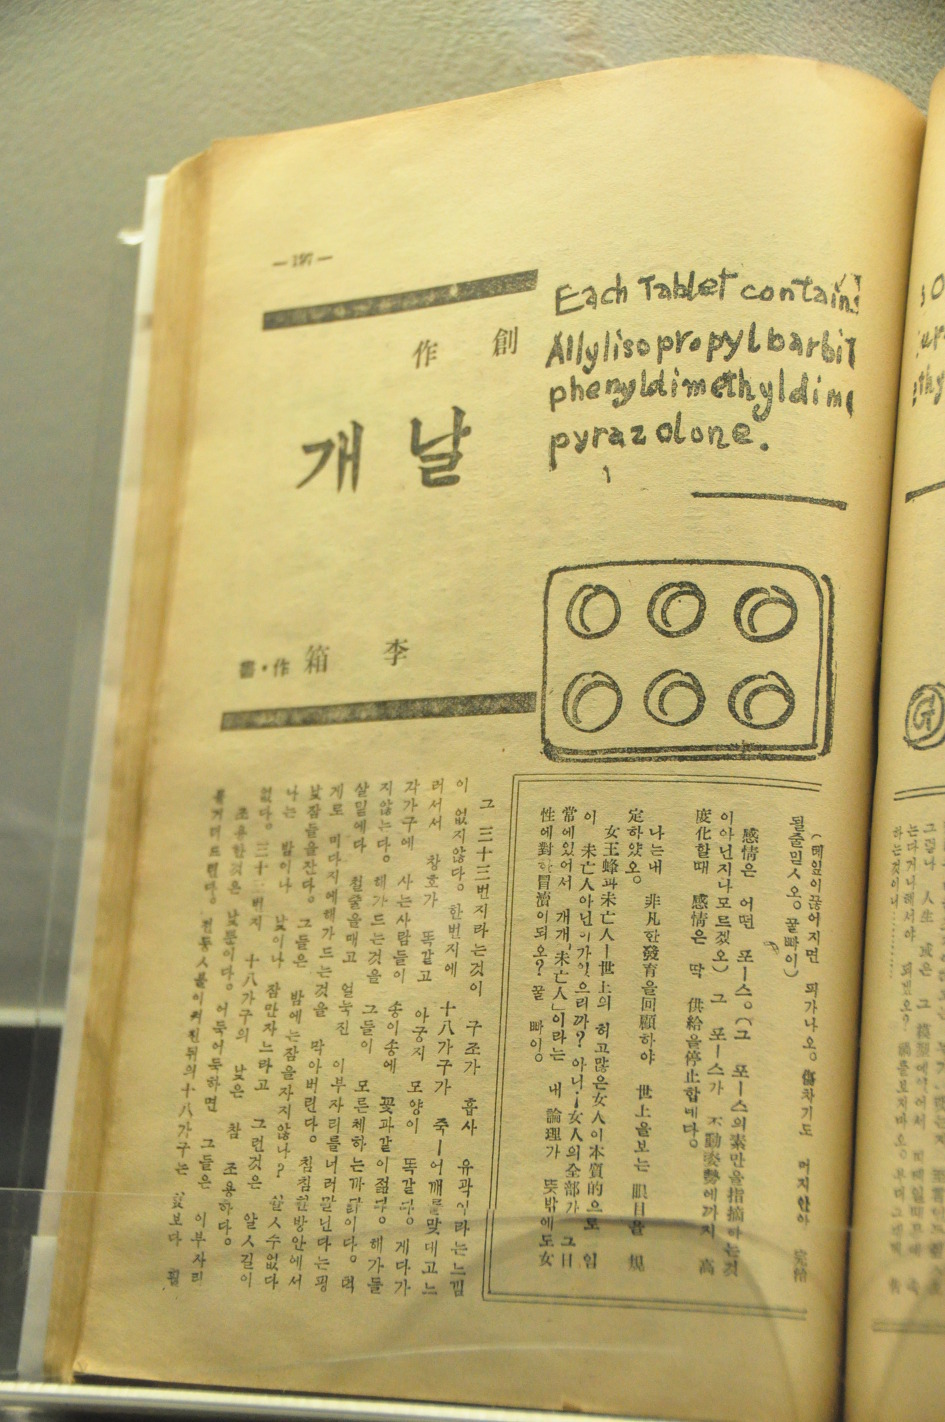 — 197 —
Each Tablet contains
Allylisopropylbarbit
phenyldimethyldime
pyrazolone.
創作
날개
李箱 作·畵
(테잎이끊어지면 피가나오。傷차기도 머지안아 完治
될줄믿人오。꿀빠이)
感情은 어떤 포—스。(그 포—스의素만을指摘하는것
이아닌지나모르겠오) 그 포—스가 不動姿勢에까지 高
度化할때 感情은 딱 供給을停止합네다。
나는내 非凡한發育을回顧하야 世上을보는 眼目을 規
定하얐오。
女王蜂과未亡人—世上의 허고많은女人이本質的으로 임
이 未亡人아닌이가있으리까? 아니!女人의全部가 그日
常에있어서 개개「未亡人」이라는 내 論理가 뜻밖에도女
性에對한冒瀆이되오? 꿀 빠이。
그 三十三번지라는것이 구조가 흡사 유곽이라는느낌
이 없지않다。한번지에 十八가구가 죽—어깨를맞대고느
러서서 창호가 똑같고 아궁지 모양이 똑같다。게다가
각가구에 사는사람들이 송이송에 꽃과같이젊다。해가들
지않는다。해가드는것을 그들이 모른체하는까닭이다。턱
살밑에다 철줄을매고 얼눅진 이부자리를너러말닌다는핑
게로 미다지에해가드는것을 막아버린다。침침한방안에서
낮잠들을잔다。그들은 밤에는잠을자지않나? 알人수없다
나는 밤이나 낮이나 잠만자느라고 그런것은 알人길이
없다。三十三번지 十八가구의 낮은 참 조용하다。
조용한것은 낮뿐이다。어둑어둑하면 그들은 이부자리
를거더드린다。전등人불이켜진뒤의十八가구는 낮보다 훨